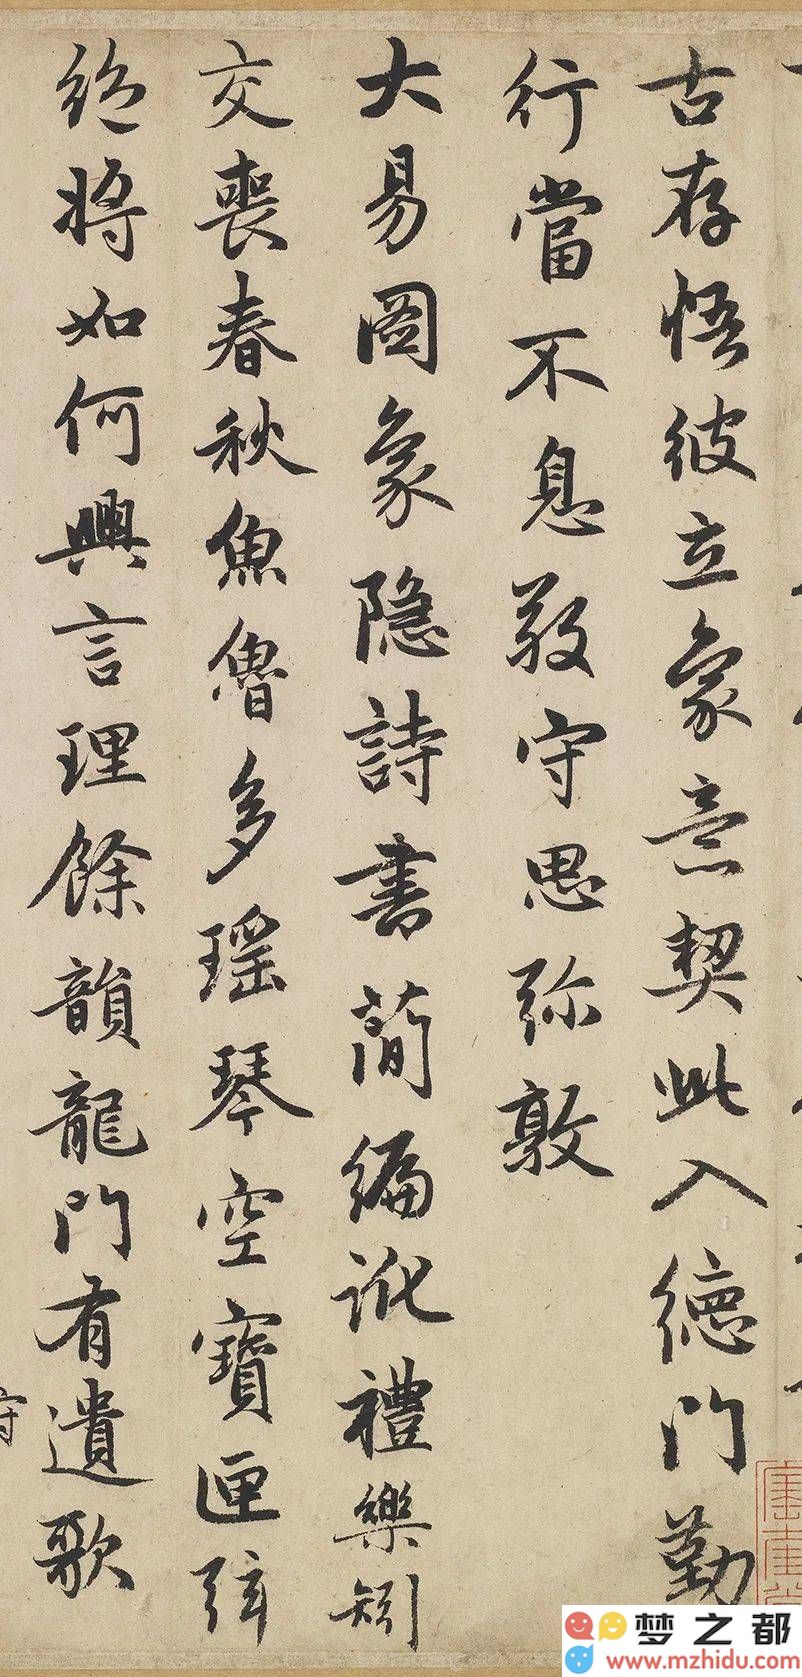 古存悟彼立象意契此入德門勤
行當不息敬守思弥敦
大易圖象隐詩書簡編訛禮樂矧
交喪春秋魚魯多瑶琴空寶匣弦
絶將如何興言理餘韻龍門有遺歌
梦之都
www.mzhidu.com